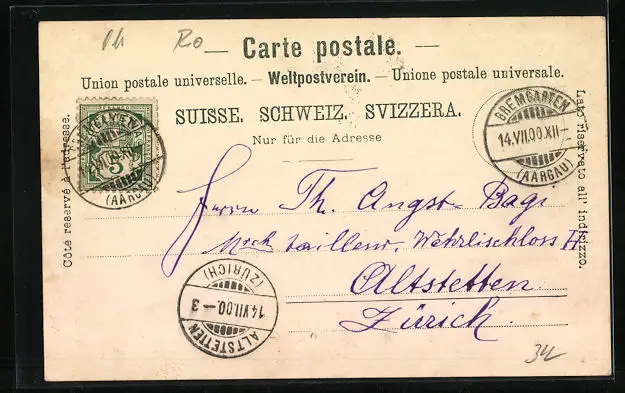 Ro
— Carte postale. —
Union postale universelle. — Weltpostverein. — Unione postale universale.
SUISSE. SCHWEIZ. SVIZZERA.
Nur für die Adresse
Côte reservé à l'adresse.
Lato riservato all' indirizzo.
BREMGARTEN
(AARGAU)
5
BREMGARTEN
14.VII.00.XII-
(AARGAU)
Herrn Th. Angst-Bagi
Wehrlischloss
Altstetten
Zürich.
(ZÜRICH)
14.VII.00.-3
ALTSTETTEN